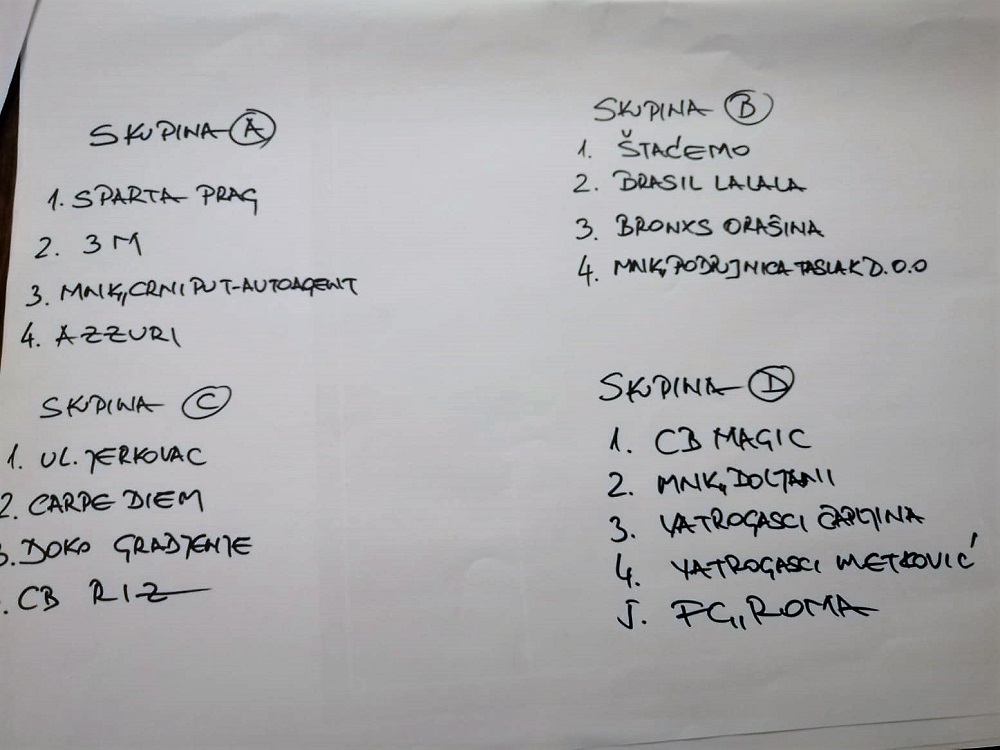 SKUPINA A
1. SPARTA PRAG
2. 3 M
3. MNK,,CRNI PUT-AUTOAGENT
4. AZZURI
SKUPINA B
1. ŠTAĆEMO
2. BRASIL LALALA
3. BRONXS ORAŠINA
4. MNK,,PODRUJNICA-TASLAK D.O.O
SKUPINA C
1. UL. JERKOVAC
2. CARPE DIEM
3. DOKO GRADJENJE
. CB RIZ
SKUPINA D
1. CB MAGIC
2. MNK,,DOLJANI
3. VATROGASCI ČAPLJINA
4. VATROGASCI METKOVIĆ
5. FC,,ROMA